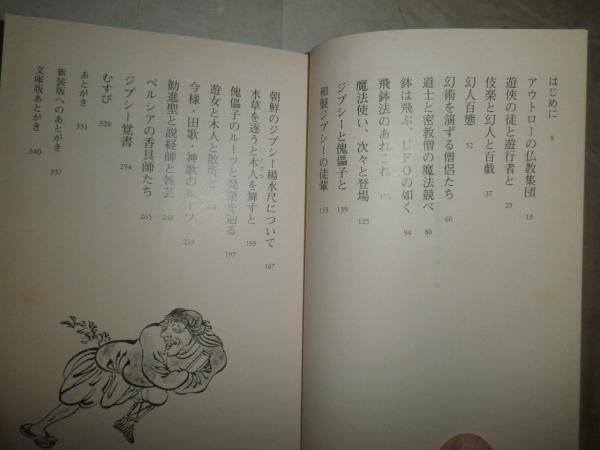 はじめに 9
アウトローの仏教集団 13
遊侠の徒と遊行者と 23
伎楽と幻人と百戯 37
幻人百態 52
幻術を演ずる僧侶たち 66
道士と密教僧の魔法競べ 80
鉢は飛ぶ、UFOの如く 94
飛鉢法のあれこれ
魔法使い、次々と登場 125
ジプシーと傀儡子と 139
和製ジプシーの徒輩 153
朝鮮のジプシー楊水尺について 167
水草を逐うと木人を舞すと 183
傀儡子のルーツと発達を辿る 197
遊女と木人と散所と
今様・田歌・神歌のルーツ 233
勧進聖と説経師と雑芸 248
ペルシアの香具師たち 265
ジプシー覚書 294
むすび 328
あとがき 331
新装版へのあとがき 337
文庫版あとがき 340